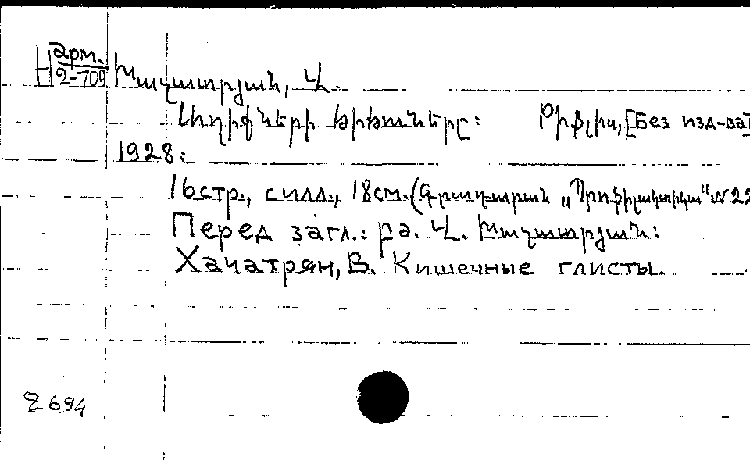 Н арм.
2-709
Խաչատրյան, Վ.
Աղիքների ճիճուները: Թիֆլիս, [Без изд-ва]
1928:
16стр., с илл., 18см. (Գրադարան „Պրոֆիլակտիկա" № 22
Перед загл.: բժ. Վ. Խաչատրյան:
Хачатрян, В. Кишечные глисты.
2694